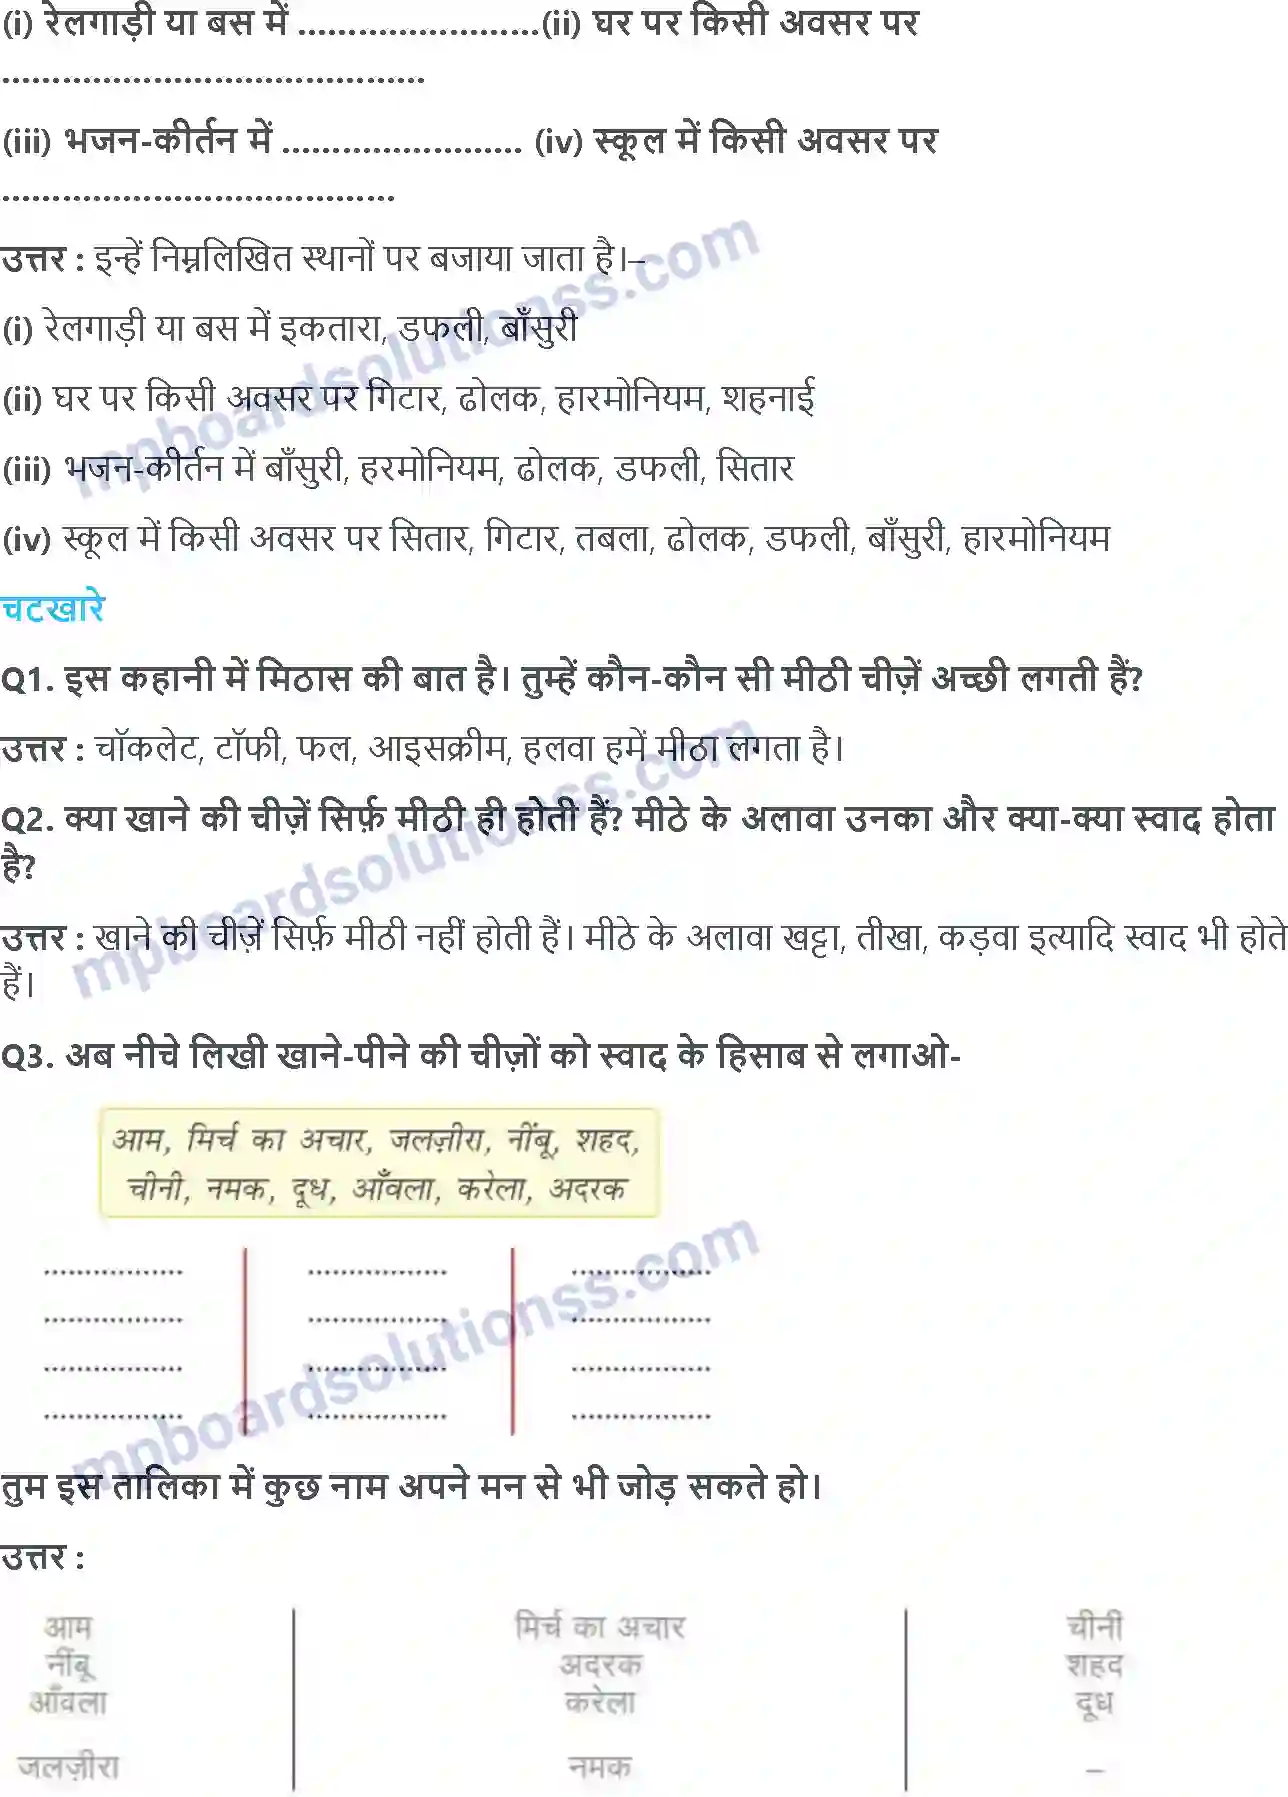 (i) रेलगाड़ी या बस में ........................(ii) घर पर किसी अवसर पर
..........................................
(iii) भजन-कीर्तन में ........................ (iv) स्कूल में किसी अवसर पर
.......................................
उत्तर : इन्हें निम्नलिखित स्थानों पर बजाया जाता है।–
(i) रेलगाड़ी या बस में इकतारा, डफली, बाँसुरी
(ii) घर पर किसी अवसर पर गिटार, ढोलक, हारमोनियम, शहनाई
(iii) भजन-कीर्तन में बाँसुरी, हरमोनियम, ढोलक, डफली, सितार
(iv) स्कूल में किसी अवसर पर सितार, गिटार, तबला, ढोलक, डफली, बाँसुरी, हारमोनियम
चटखारे
Q1. इस कहानी में मिठास की बात है। तुम्हें कौन-कौन सी मीठी चीज़ें अच्छी लगती हैं?
उत्तर : चॉकलेट, टॉफी, फल, आइसक्रीम, हलवा हमें मीठा लगता है।
Q2. क्या खाने की चीज़ें सिर्फ़ मीठी ही होती हैं? मीठे के अलावा उनका और क्या-क्या स्वाद होता
है?
उत्तर : खाने की चीज़ें सिर्फ़ मीठी नहीं होती हैं। मीठे के अलावा खट्टा, तीखा, कड़वा इत्यादि स्वाद भी होते
हैं।
Q3. अब नीचे लिखी खाने-पीने की चीज़ों को स्वाद के हिसाब से लगाओ-
आम, मिर्च का अचार, जलज़ीरा, नींबू, शहद,
चीनी, नमक, दूध, आँवला, करेला, अदरक
................. ................. .................
................. ................. .................
................. ................. .................
................. ................. .................
तुम इस तालिका में कुछ नाम अपने मन से भी जोड़ सकते हो।
उत्तर :
आम मिर्च का अचार चीनी
नींबू अदरक शहद
आँवला करेला दूध
जलज़ीरा नमक –
mpboardsolutionss.com
mpboardsolutionss.com
mpboardsolutionss.com